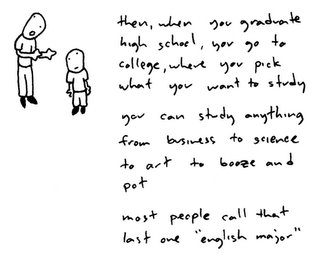 then, when you graduate
high school, you go to
college, where you pick
what you want to study
you can study anything
from business to science
to art to booze and
pot
most people call that
last one "english major"